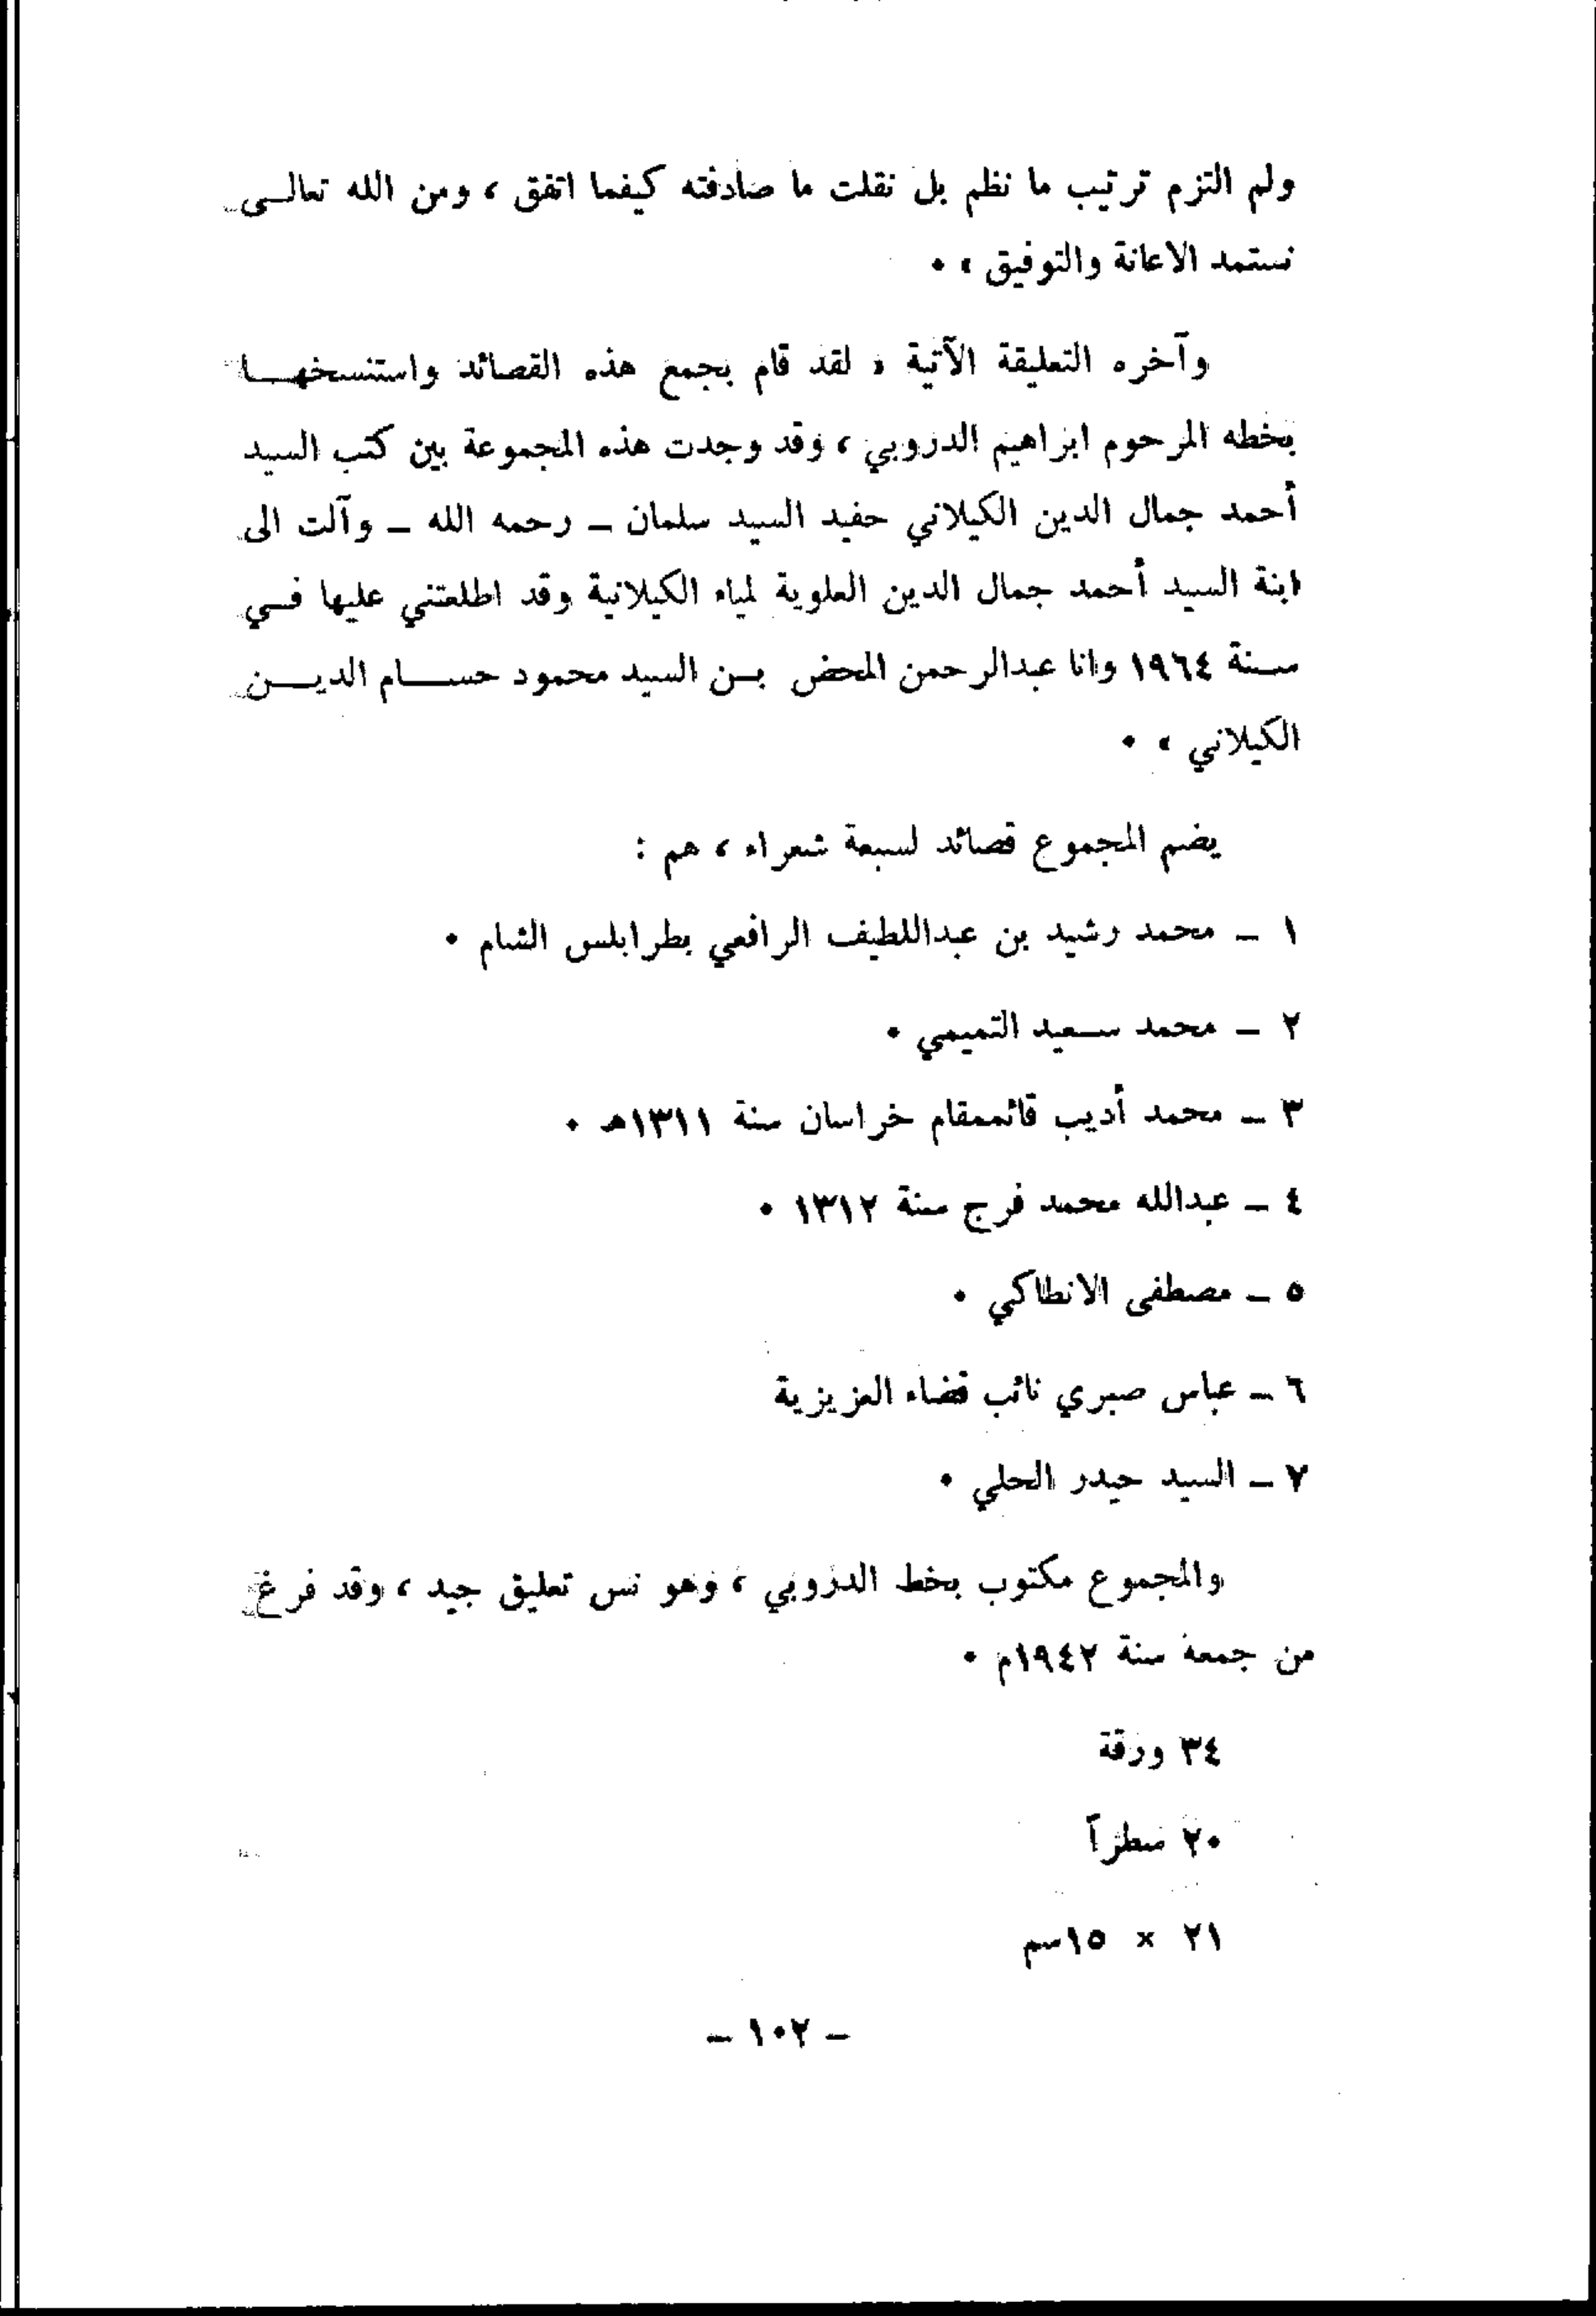 ولم التزم ترتيب ما نظم بل نقلت ما صادفته كيفما اتفق ، ومن الله تعالى
نستمد الاعانة والتوفيق » •
وآخره التعليقة الآتية « لقد قام بجمع هذه القصائد واستنسخها
بخطه المرحوم ابراهيم الدروبي ، وقد وجدت هذه المجموعة بين كتب السيد
أحمد جمال الدين الكيلاني حفيد السيد سلمان – رحمه الله – وآلت الى
ابنة السيد أحمد جمال الدين العلوية لمياء الكيلانية وقد اطلعتني عليها في
سنة ١٩٦٤ وانا عبدالرحمن المحض بن السيد محمود حسام الدين
الكيلاني » •
يضم المجموع قصائد لسبعة شعراء ، هم :
١ – محمد رشيد بن عبداللطيف الرافعي بطرابلس الشام •
٢ – محمد سعيد التميمي •
٣ – محمد أديب قائممقام خراسان سنة ١٣١١هـ •
٤ – عبدالله محمد فرج سنة ١٣١٢ •
٥ – مصطفى الانطاكي •
٦ – عباس صبري نائب قضاء العزيزية
٧ – السيد حيدر الحلي •
والمجموع مكتوب بخط الدروبي ، وهو نس تعليق جيد ، وقد فرغ
من جمعه سنة ١٩٤٢م •
٣٤ ورقة
٢٠ سطراً
٢١ × ١٥سم
– ١٠٢ –